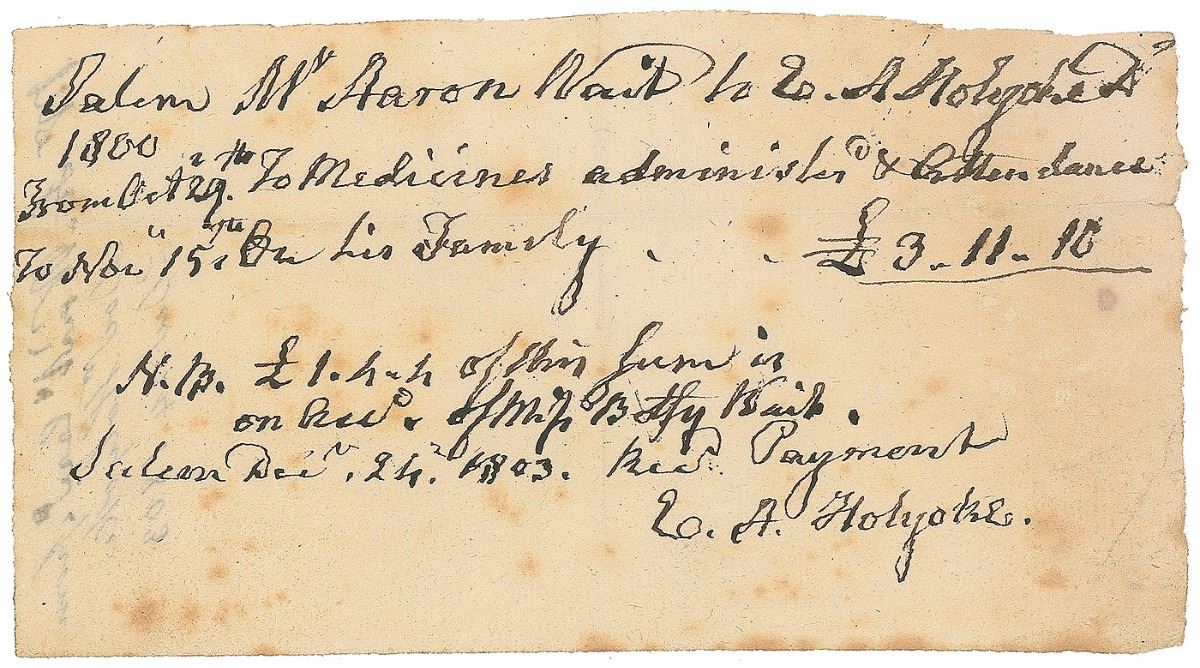 Salem Mr Aaron Wait to E. A Holyoke Dr
1800
From Oct 29.th To Medicines administerd & Attendance
To Nov 15th On his Family . . £ 3 .. 11 .. 10
N.B. £ 1.4.4 of this Sum is
on of Miss Betsy Wait.
Salem Decr. 24. 1803. Recd Payment
E. A. Holyoke.